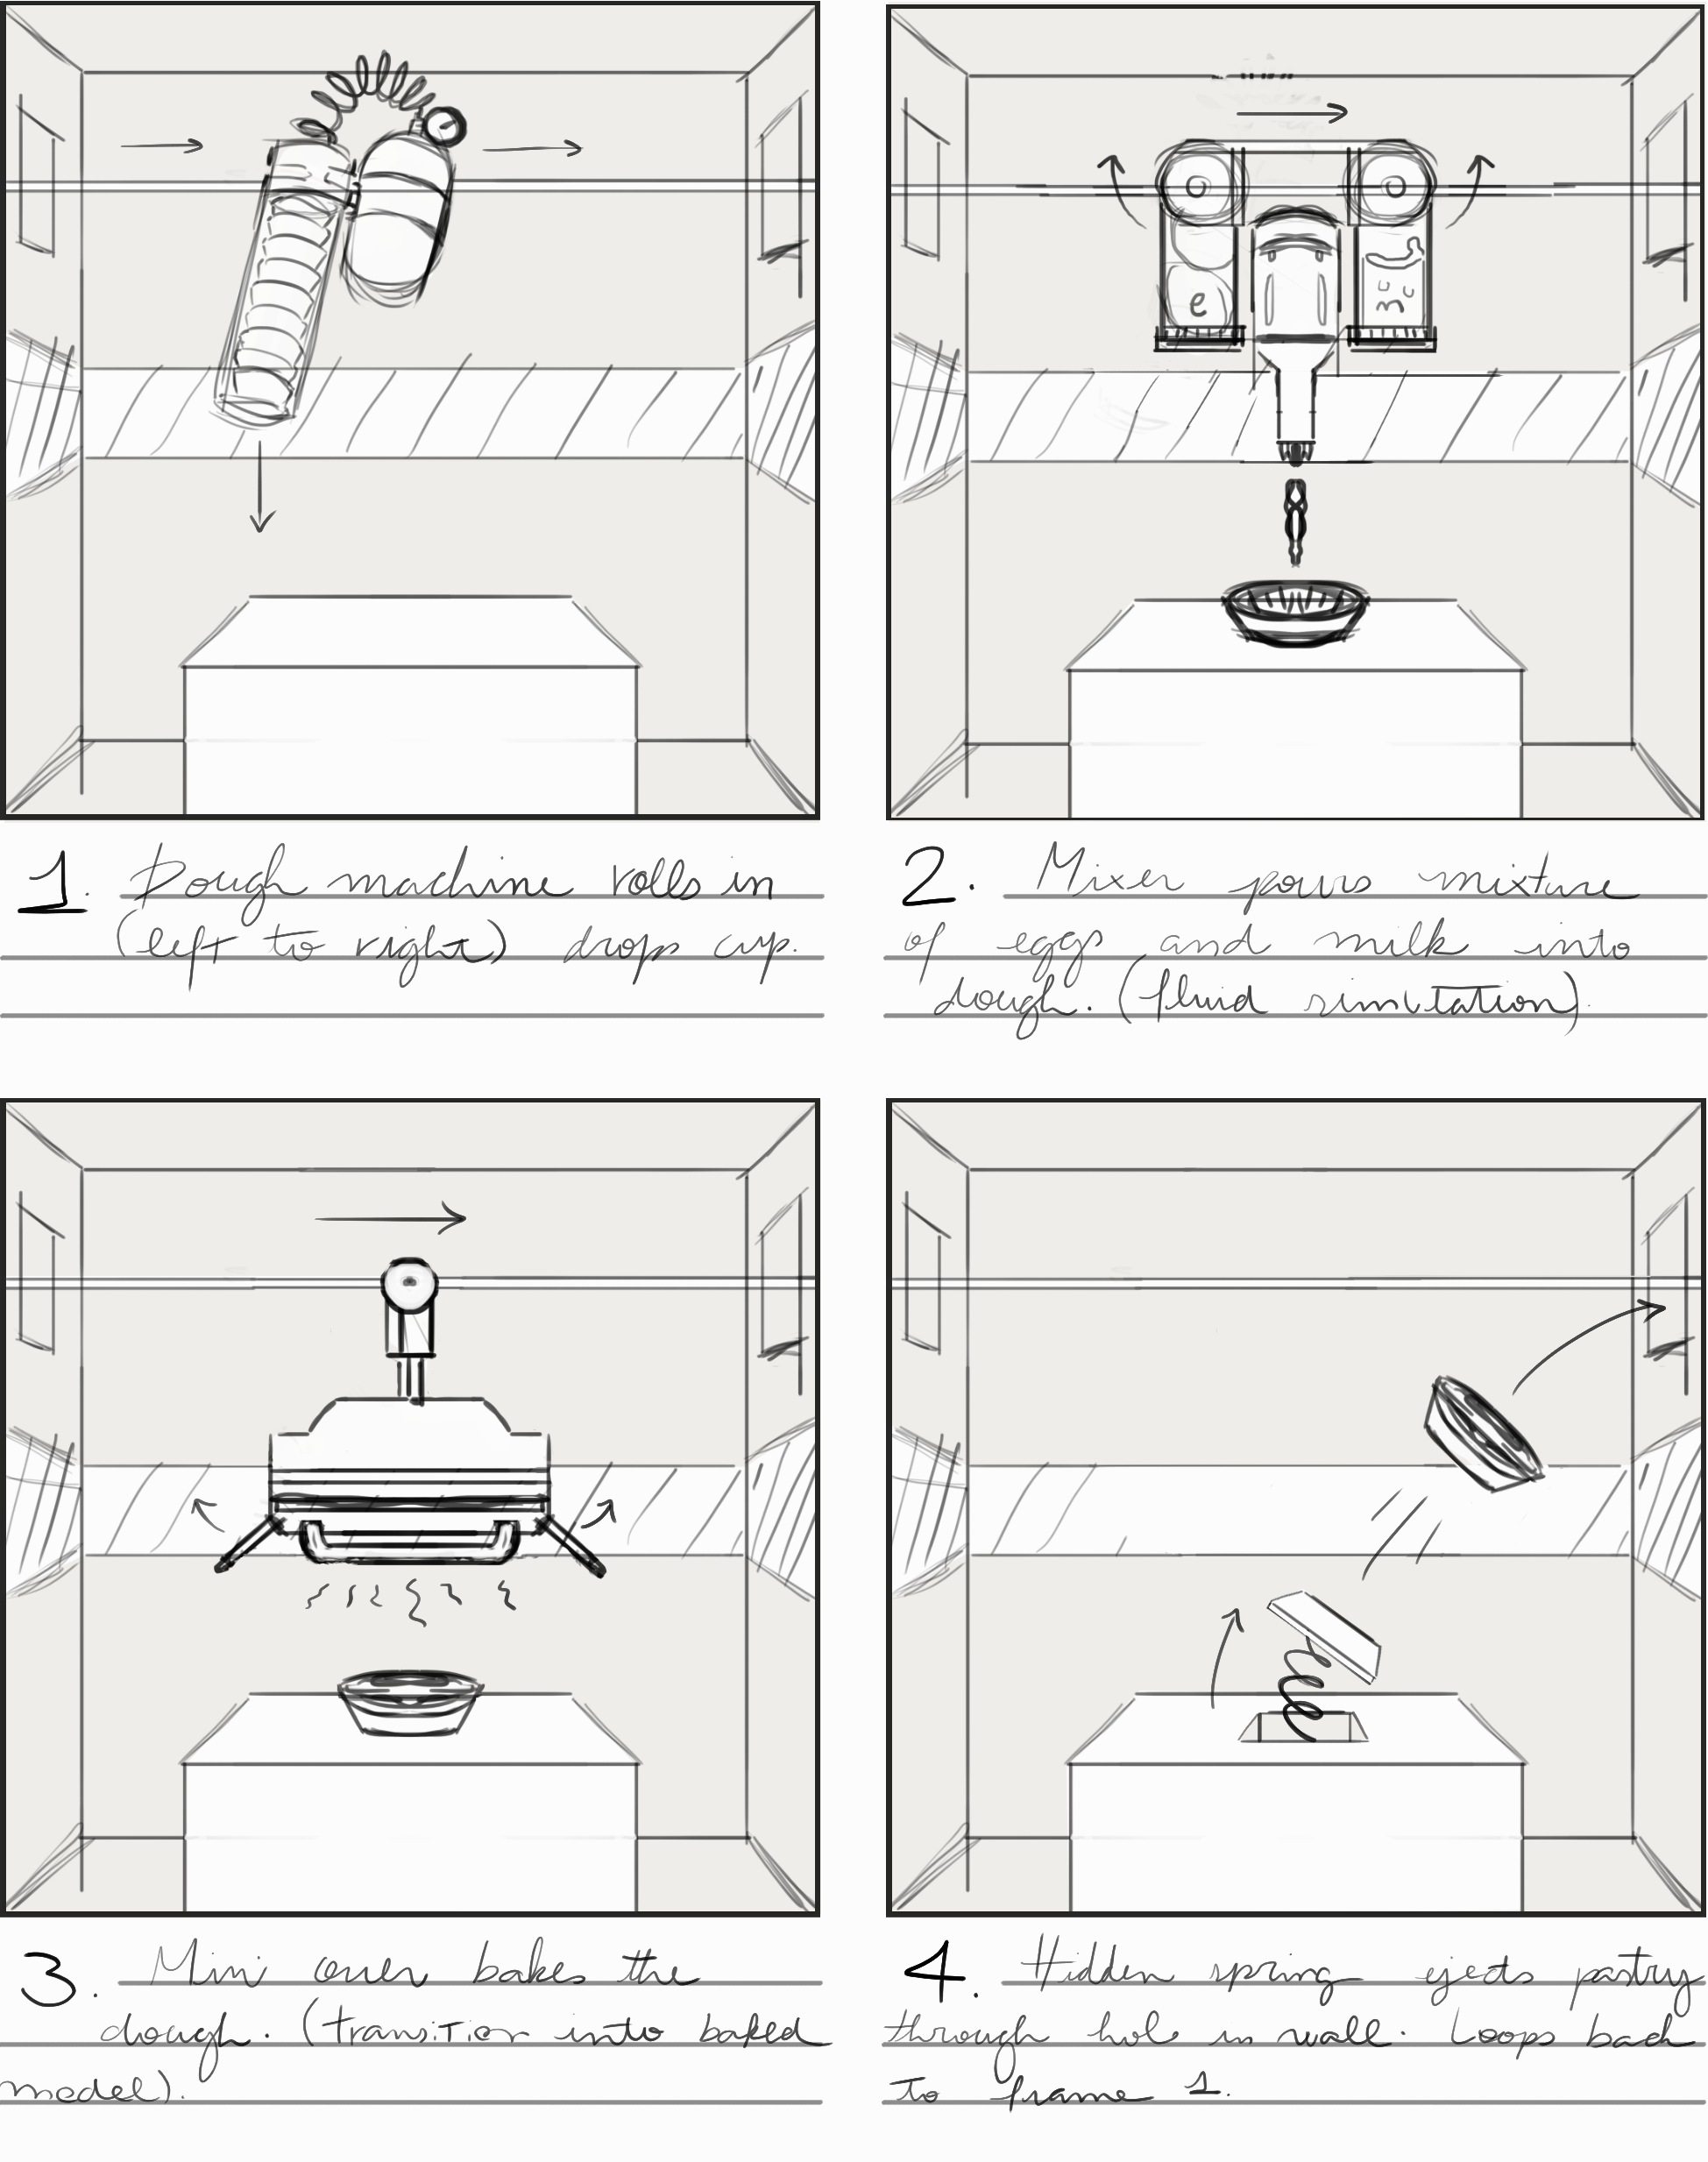 e
m
1. Dough machine rolls in
(left to right) drops cup.
2. Mixer pours mixture
of eggs and milk into
dough. (fluid simulation)
3. Mini oven bakes the
dough. (transition into baked
model).
4. Hidden spring ejects pastry
through hole in wall. Loops back
to frame 1.